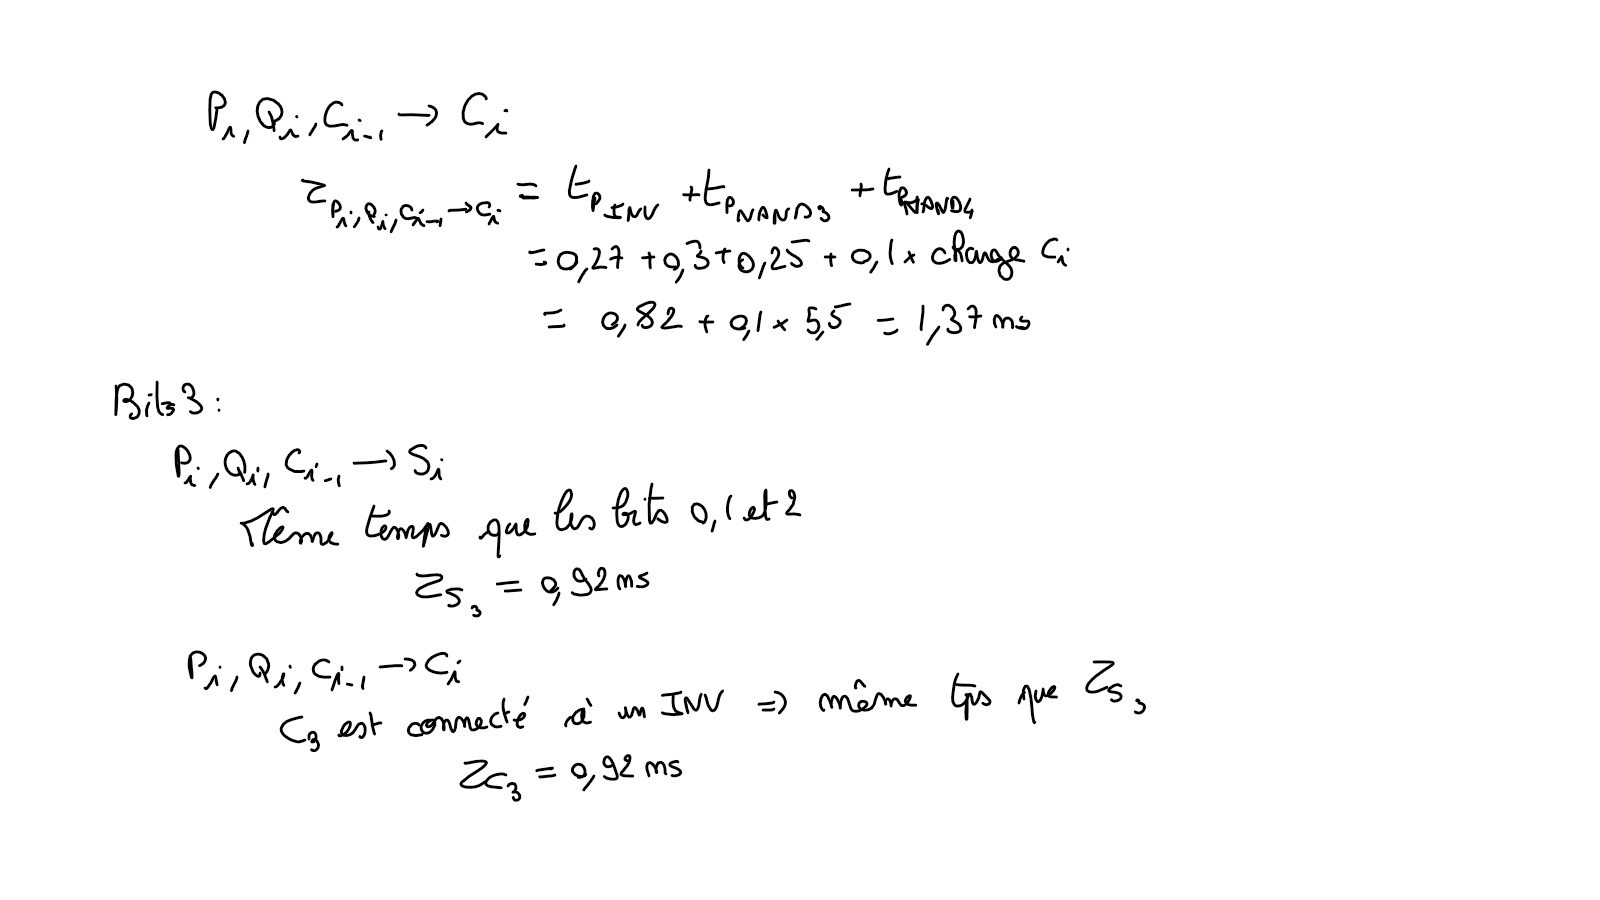 Pi, Qi, Ci-1 → Ci
τPi,Qi,Ci-1→Ci = tPINV + tPNAND3 + tPNAND4
= 0,27 + 0,3 + 0,25 + 0,1 × charge Ci
= 0,82 + 0,1 × 5,5 = 1,37 ns
Bits 3 :
Pi, Qi, Ci-1 → Si
Même temps que les bits 0, 1 et 2
τS3 = 0,92 ns
Pi, Qi, Ci-1 → Ci
C3 est connecté à un INV => même tps que τS3
τC3 = 0,92 ns